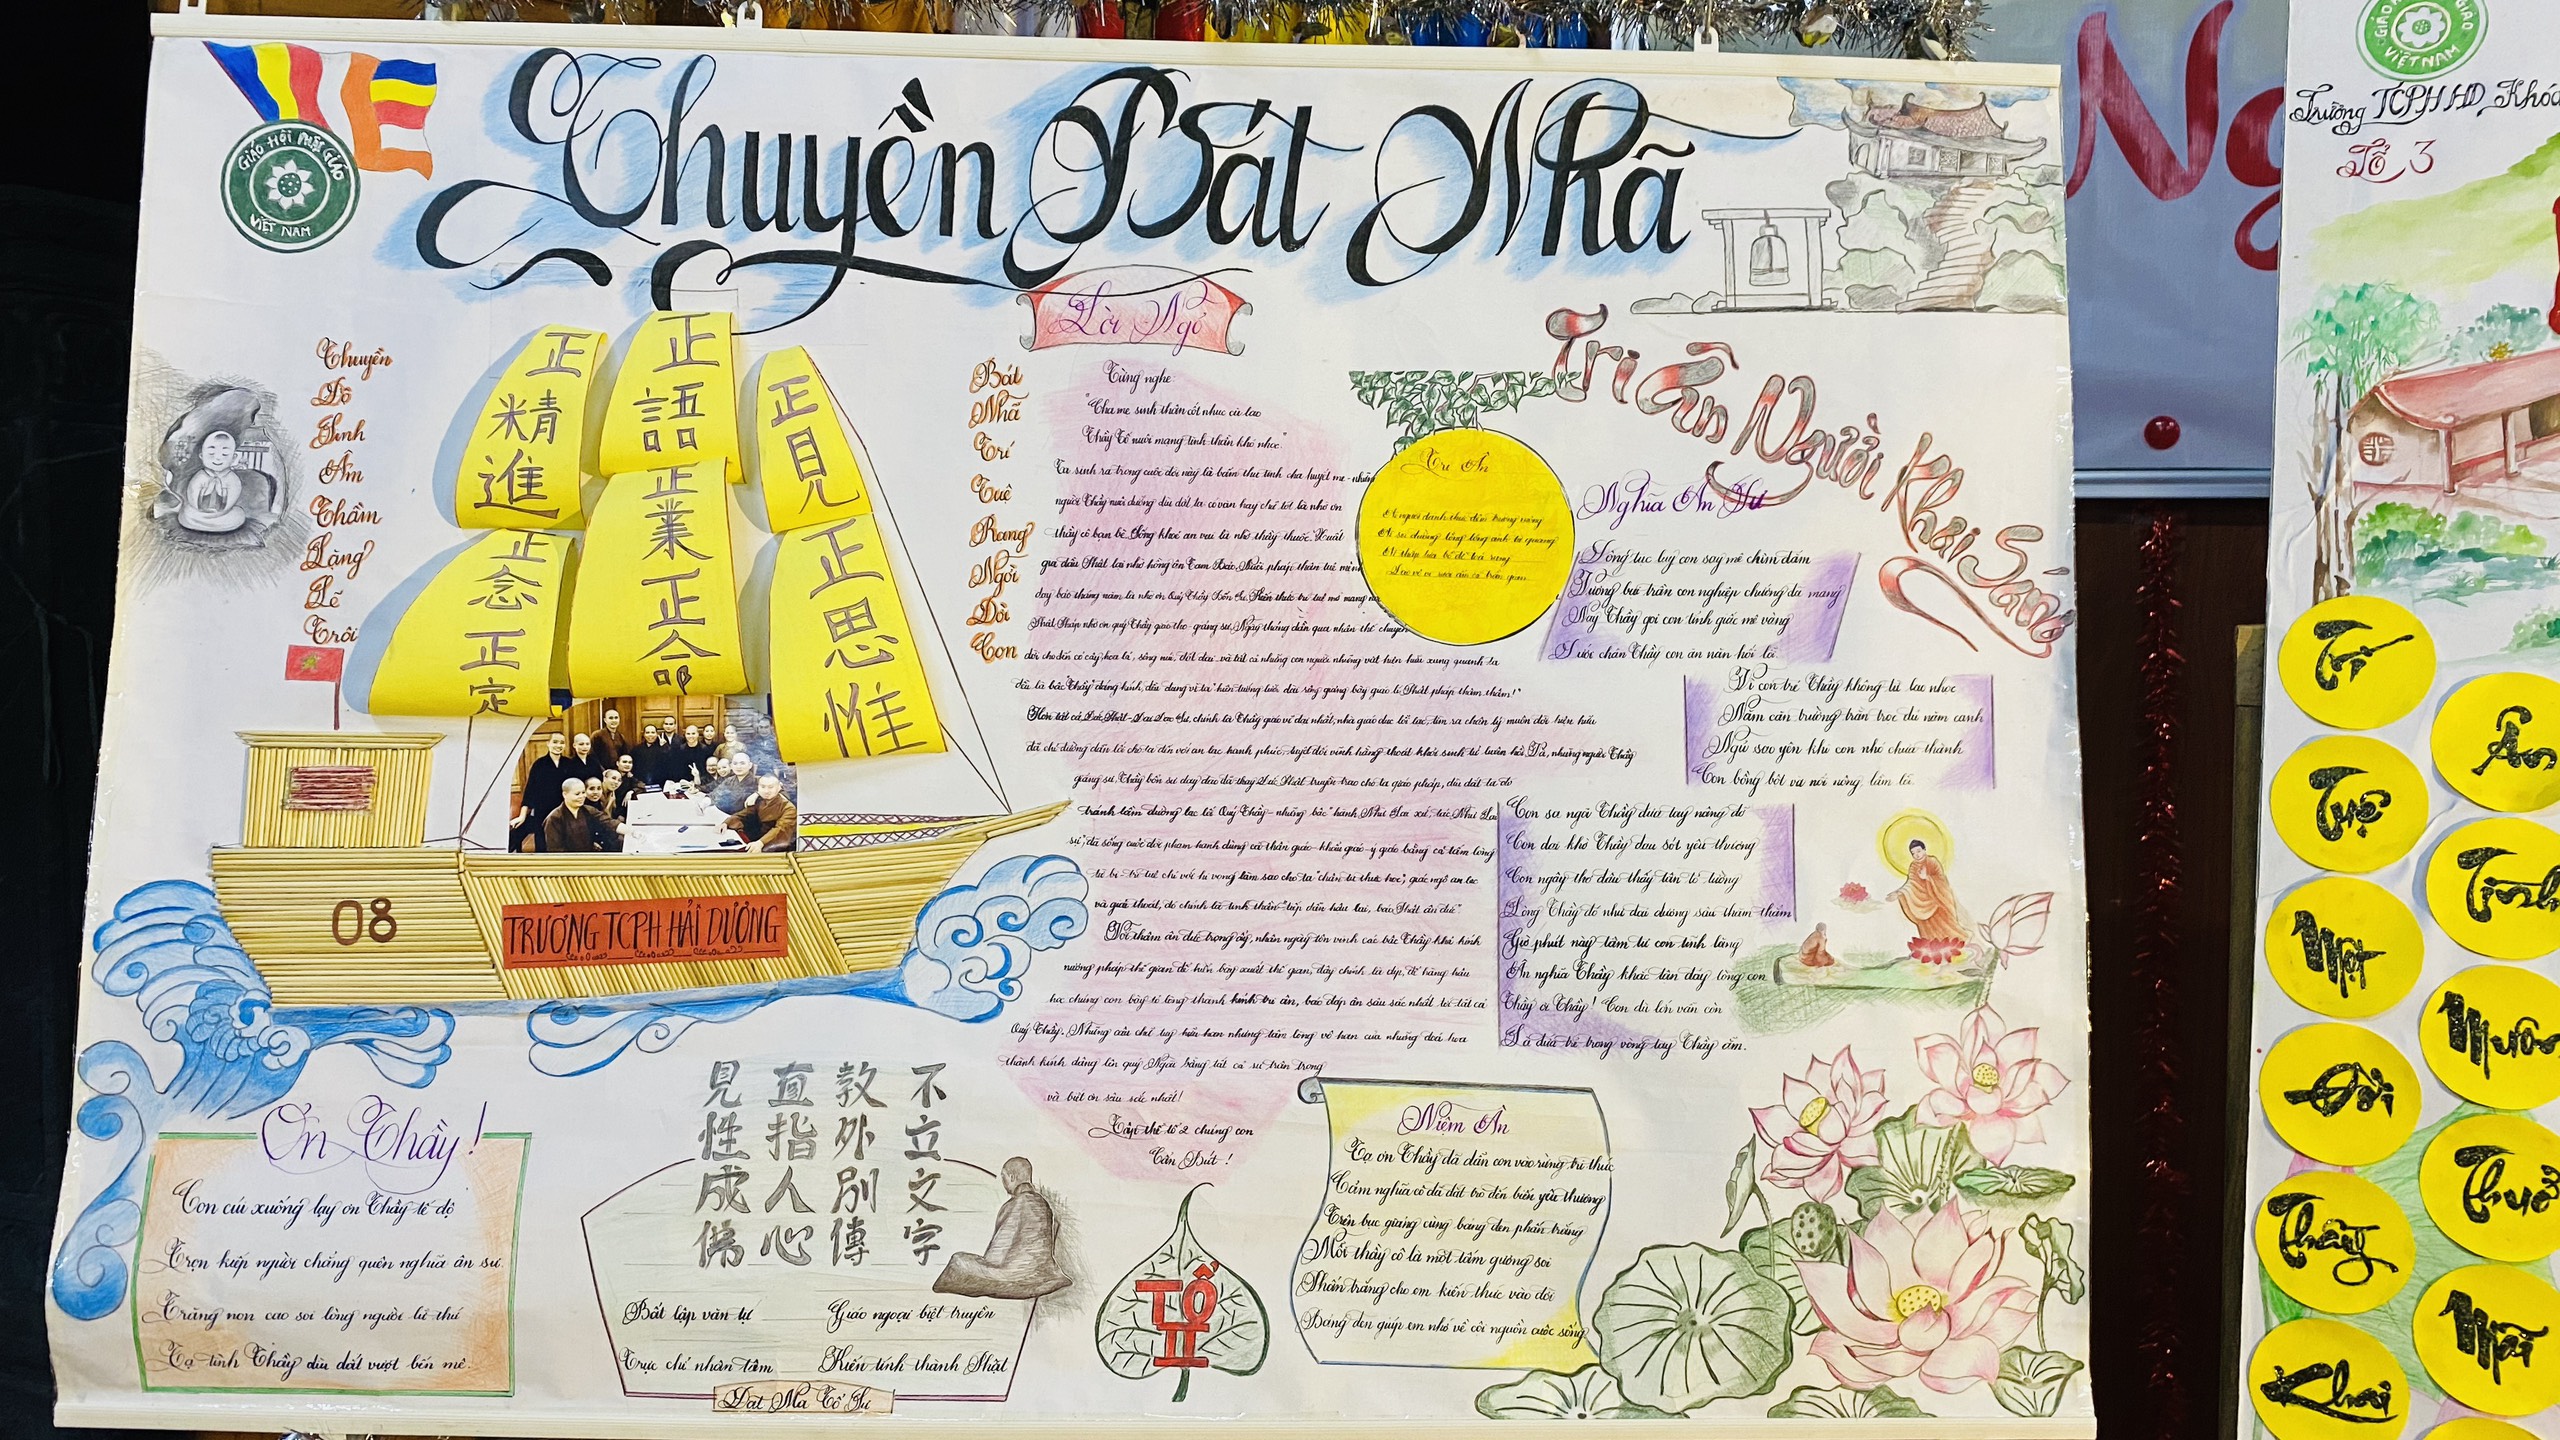 GIÁO HỘI PHẬT GIÁO
VIỆT NAM
Thuyền Bát Nhã
Thuyền
Độ
Sinh
Âm
Thầm
Lặng
Lẽ
Trôi
正精進
正語
正見
正念
正定
正業
正命
正思惟
08
TRƯỜNG TCPH HẢI DƯƠNG
Bát
Nhã
Trí
Tuệ
Rạng
Ngời
Đời
Con
Lời Ngỏ
Từng nghe:
"Cha mẹ sinh thân cốt nhục cù lao
Thầy Tổ nuôi mạng tính thân khó nhọc"
Ta sinh ra trong cuộc đời này là bẩm thụ tinh cha huyết mẹ
người Thầy nuôi dưỡng dìu dắt ta có văn hay chữ tốt là nhờ ơn
thầy cô bạn bè. Sống khoẻ an vui là nhờ thầy thuốc. Xuất
gia đầu Phật lại nhờ hồng ân Tam Bảo. Nuôi pháp thân tuệ mệnh
dạy bảo tháng năm là nhờ ơn Quý Thầy Bổn Sư.
Phật Pháp nhờ ơn quý Thầy giáo thọ giảng sư. Ngày tháng dần qua nhân thế chuyển
dời cho đến cỏ cây, hoa lá, sông núi, đất đai và tất cả những con người những vật hiện hữu xung quanh ta
đều là bậc "Thầy" đáng kính, đều đang vì ta "hiện tướng lưỡi dài rộng giảng bày giáo lí Phật pháp thậm thâm!"
Hơn tất cả Đức Phật
đã chỉ đường dẫn lối cho ta đến với an lạc hạnh phúc, tuyệt đối vĩnh hằng thoát khỏi sinh tử luân hồi. Và, những người Thầy
giảng sư, Thầy bổn sư dạy đạo đã thay Đức Phật truyền trao cho ta giáo pháp, dìu dắt ta đi
tránh lầm đường lạc lối. Quý Thầy - những bậc "hành Như Lai xứ, tác Như Lai
sự" đã sống cuộc đời phạm hạnh dùng cả thân giáo - khẩu giáo - ý giáo bằng cả tấm lòng
từ bi - trí tuệ chỉ với hi vọng làm sao cho ta "chân tu thực học", giác ngộ an lạc
và giải thoát, đó chính là tinh thần "tiếp dẫn hậu lai, báo Phật ân đức".
Với thâm ân đức trọng ấy, nhân ngày tôn vinh các bậc Thầy khả kính
nương pháp thế gian để hiển bày xuất thế gian, đây chính là dịp, để hàng hậu
học chúng con bày tỏ lòng thành kính tri ân, báo đáp ân sâu sắc nhất tới tất cả
Quý Thầy. Những câu chữ tuy hữu hạn nhưng tấm lòng vô hạn của những đoá hoa
thành kính dâng lên quý Ngài bằng tất cả sự trân trọng
và biết ơn sâu sắc nhất!
Tập thể tổ 2 chúng con
Cẩn Bút!
Tri Ân Người Khai Sáng
Tri Ân
Nghĩa Ân Sư
Sông tục luỵ con say mê chìm đắm
Vương bụi trần con nghiệp chướng đa mang
Nay Thầy gọi con tỉnh giấc mê vàng
Dưới chân Thầy con ăn năn hối lỗi
Vì con trẻ Thầy không từ lao nhọc
Năm căn trường trằn trọc đủ năm canh
Ngủ sao yên khi con nhỏ chưa thành
Con bồng bột và nổi nóng lầm lỗi
Con sa ngã Thầy đưa tay nâng đỡ
Con dại khờ Thầy đau xót yêu thương
Con ngây thơ đâu thấy tận tỏ tường
Lòng Thầy đó như đại dương sâu thăm thẳm
Giờ phút này tâm tư con tĩnh lặng
Ân nghĩa Thầy khắc tận đáy lòng con
Thầy ơi Thầy! Con dù lớn vẫn còn
Là đứa trẻ trong vòng tay Thầy ấm.
Ơn Thầy!
Con cúi xuống lạy ơn Thầy tế độ
Trọn kiếp người chẳng quên nghĩa ân sư
Trăng non cao soi lòng người lữ thứ
Tạ tình Thầy dìu dắt vượt bến mê
見 直 教 不
性 指 外 立
成 人 別 文
佛 心 傳 字
Bất lập văn tự
Giáo ngoại biệt truyền
Trực chỉ nhân tâm
Kiến tính thành Phật
Đạt Ma Tổ Sư
TỔ
II
Niệm Ân
Tạ ơn Thầy đã dẫn con vào rừng tri thức
Cảm nghĩa cô đã dắt trò đến biển yêu thương
Trên bục giảng cùng bảng đen phấn trắng
Mỗi thầy cô là một tấm gương soi
Phấn trắng cho em kiến thức vào đời
Bảng đen giúp em nhớ về cội nguồn cuộc sống
VIỆT NAM
Trường TCPH HD Khóa
Tổ 3
Tri
Ân
Tuệ
Tình
Một
Mười
Đời
Thuở
Thắng
Mãi
Khai